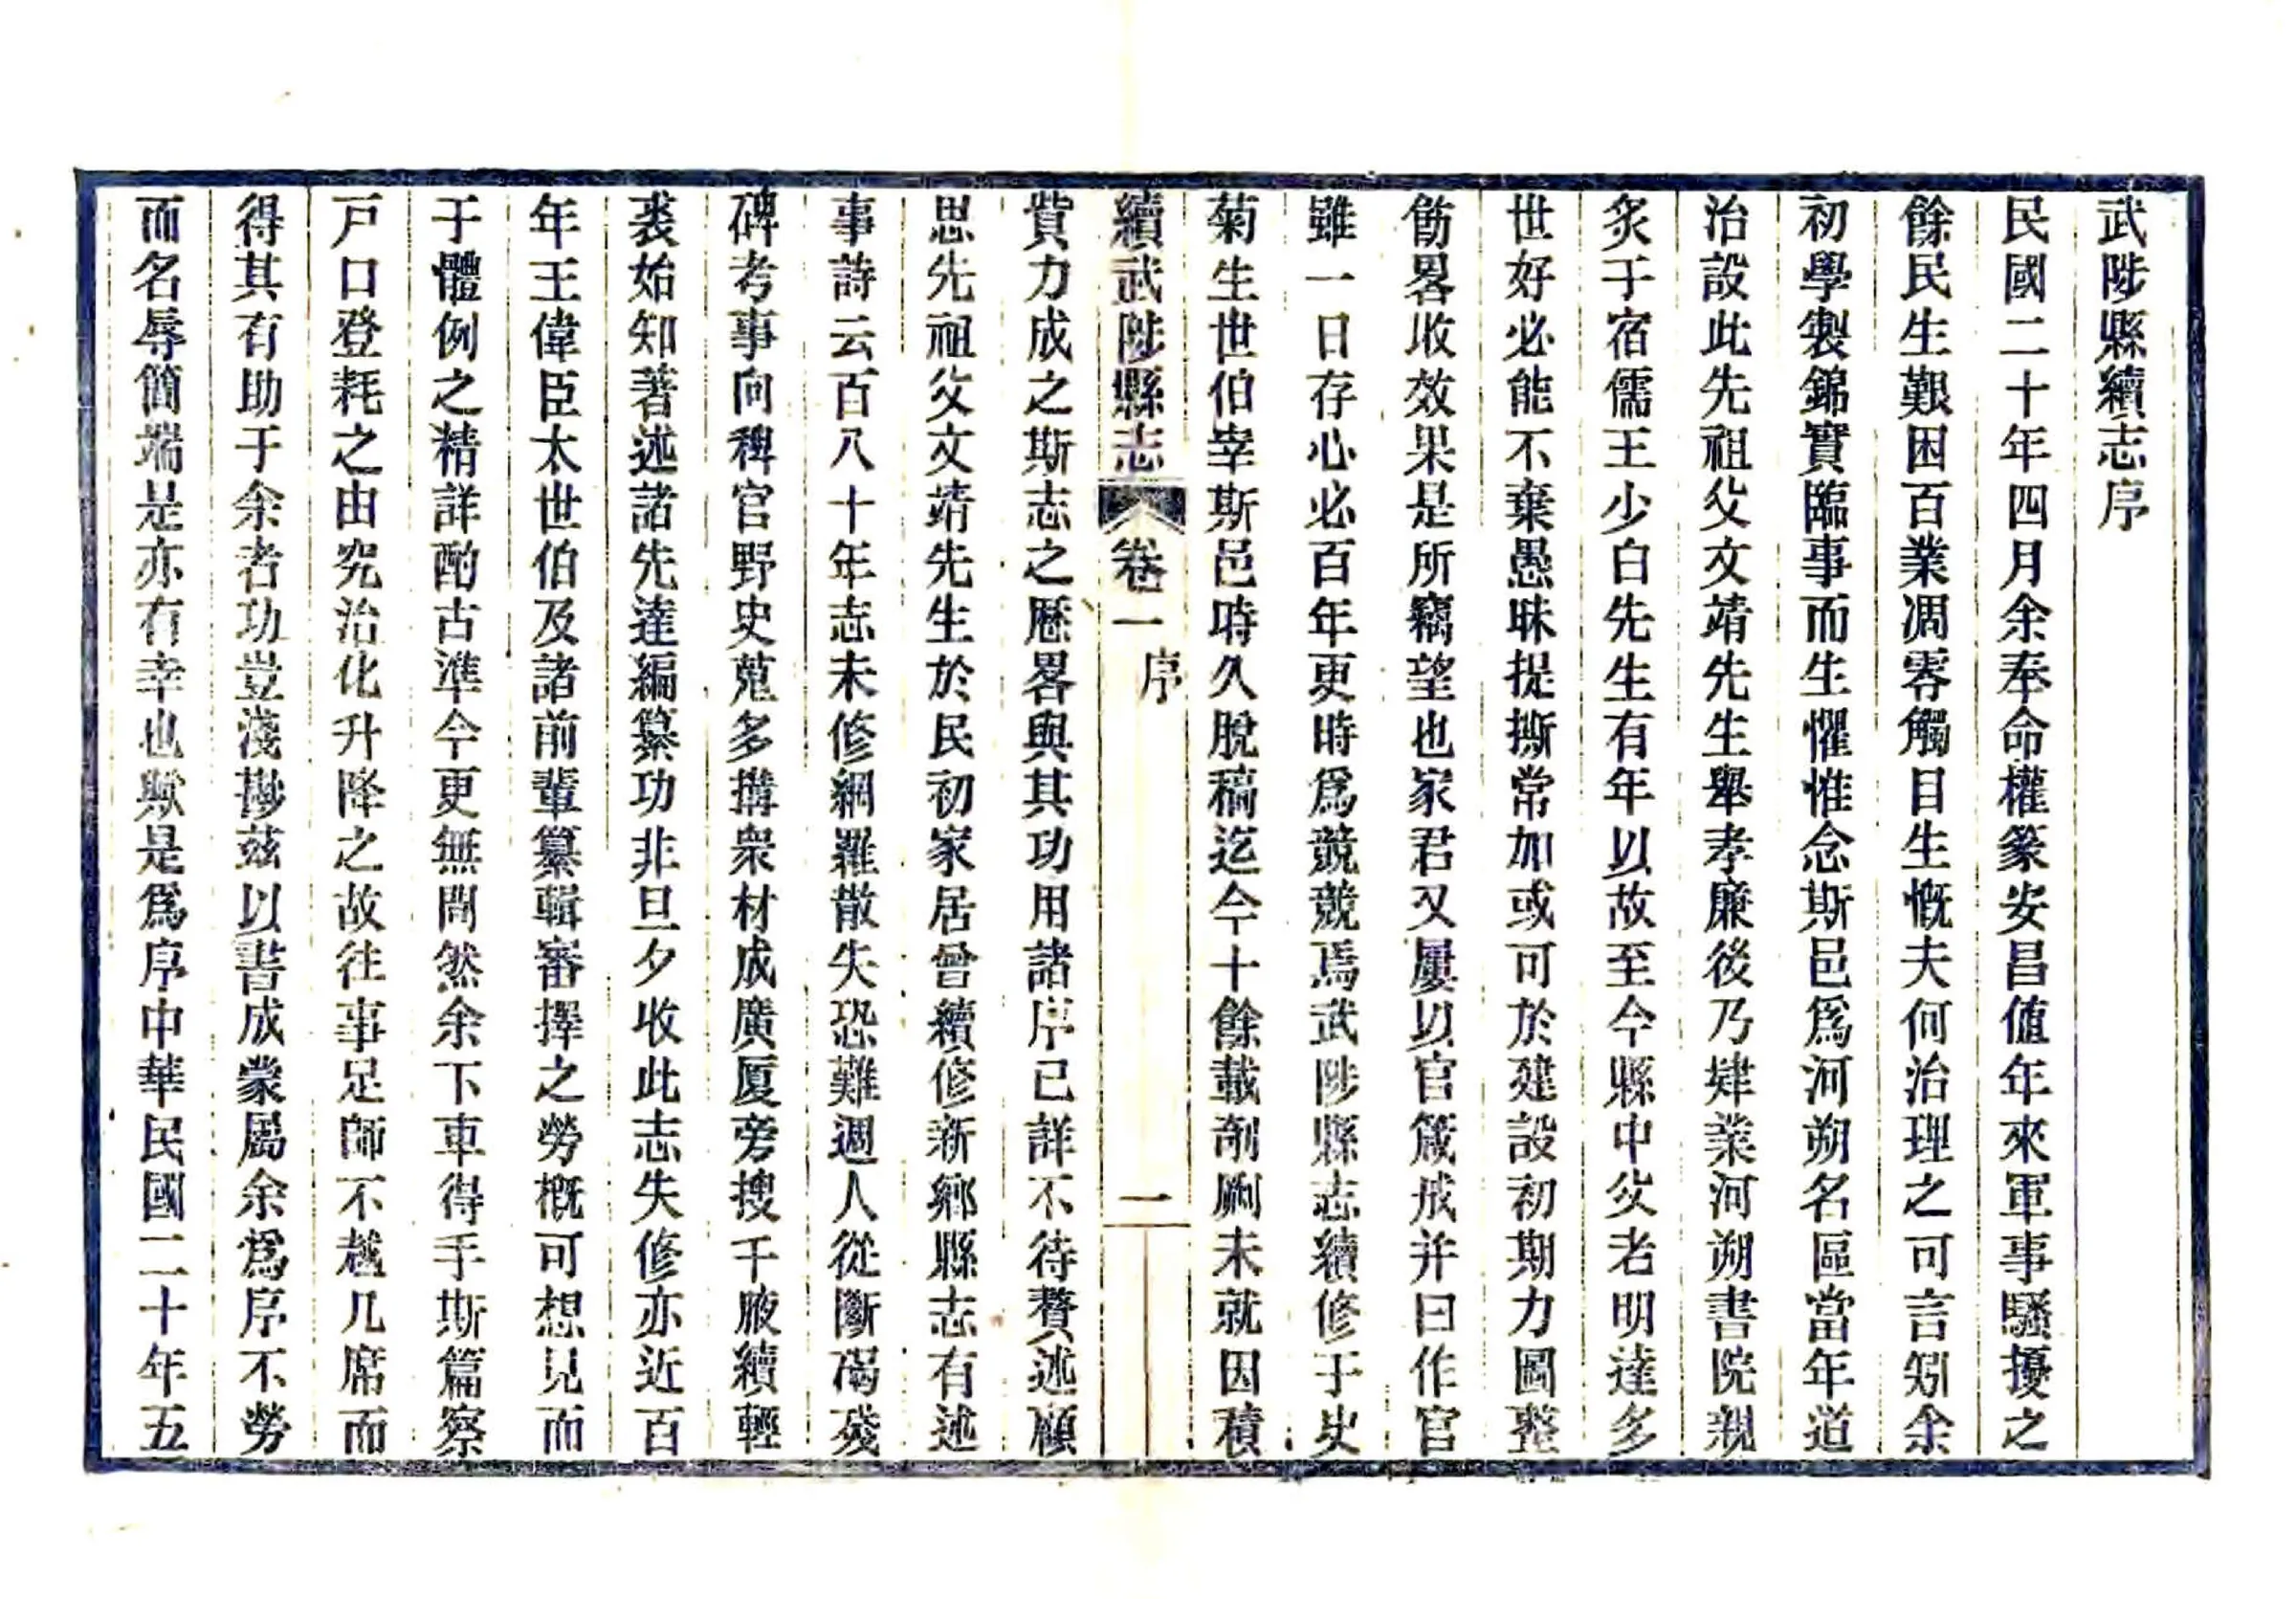 武陟縣續志序
民國二十年四月余奉命權篆安昌値年來軍事騷擾之
餘民生艱困百業凋零觸目生慨夫何治理之可言矧余
初學製錦實臨事而生懼惟念斯邑爲河朔名區當年道
治設此先祖父文靖先生舉孝廉後乃肄業河朔書院親
炙于宿儒王少白先生有年以故至今縣中父老明達多
世好必能不棄愚昧提撕常加或可於建設初期力圖整
飭畧收效果是所竊望也家君又屢以官箴戒并曰作官
雖一日存心必百年更時爲競競焉武陟縣志續修于史
菊生世伯宰斯邑時久脫稿迄今十餘載剞劂未就因積
續武陟縣志 卷一 序 一
貲力成之斯志之歷畧與其功用諸序已詳不待贅述顧
思先祖父文靖先生於民初家居曾續修新鄉縣志有述
事詩云百八十年志未修網羅散失恐難週人從斷碣殘
碑考事向稗官野史蒐多搆衆材成廣厦旁搜千腋續輕
裘始知著述諸先達編纂功非旦夕收此志失修亦近百
年王偉臣太世伯及諸前輩纂輯審擇之勞槪可想見而
于體例之精詳酌古準今更無間然余下車得手斯篇察
戸口登耗之由究治化升降之故往事足師不越几席而
得其有助于余者功豈淺尠茲以書成蒙屬余爲序不勞
而名辱簡端是亦有幸也歟是爲序中華民國二十年五